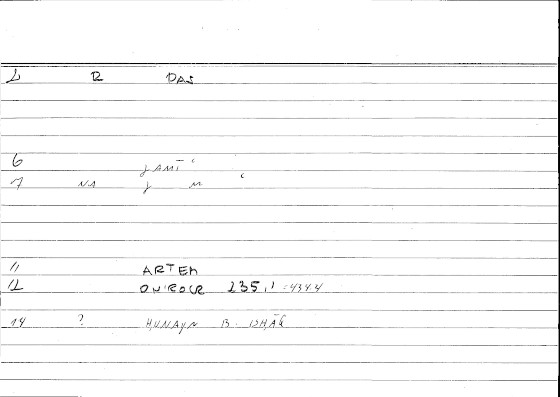 R DAS
6 JAMI'
7 NA J M '
11 ARTEM
12 235,1 = 434.4
14 ? HUNAYN B. ISHĀQ